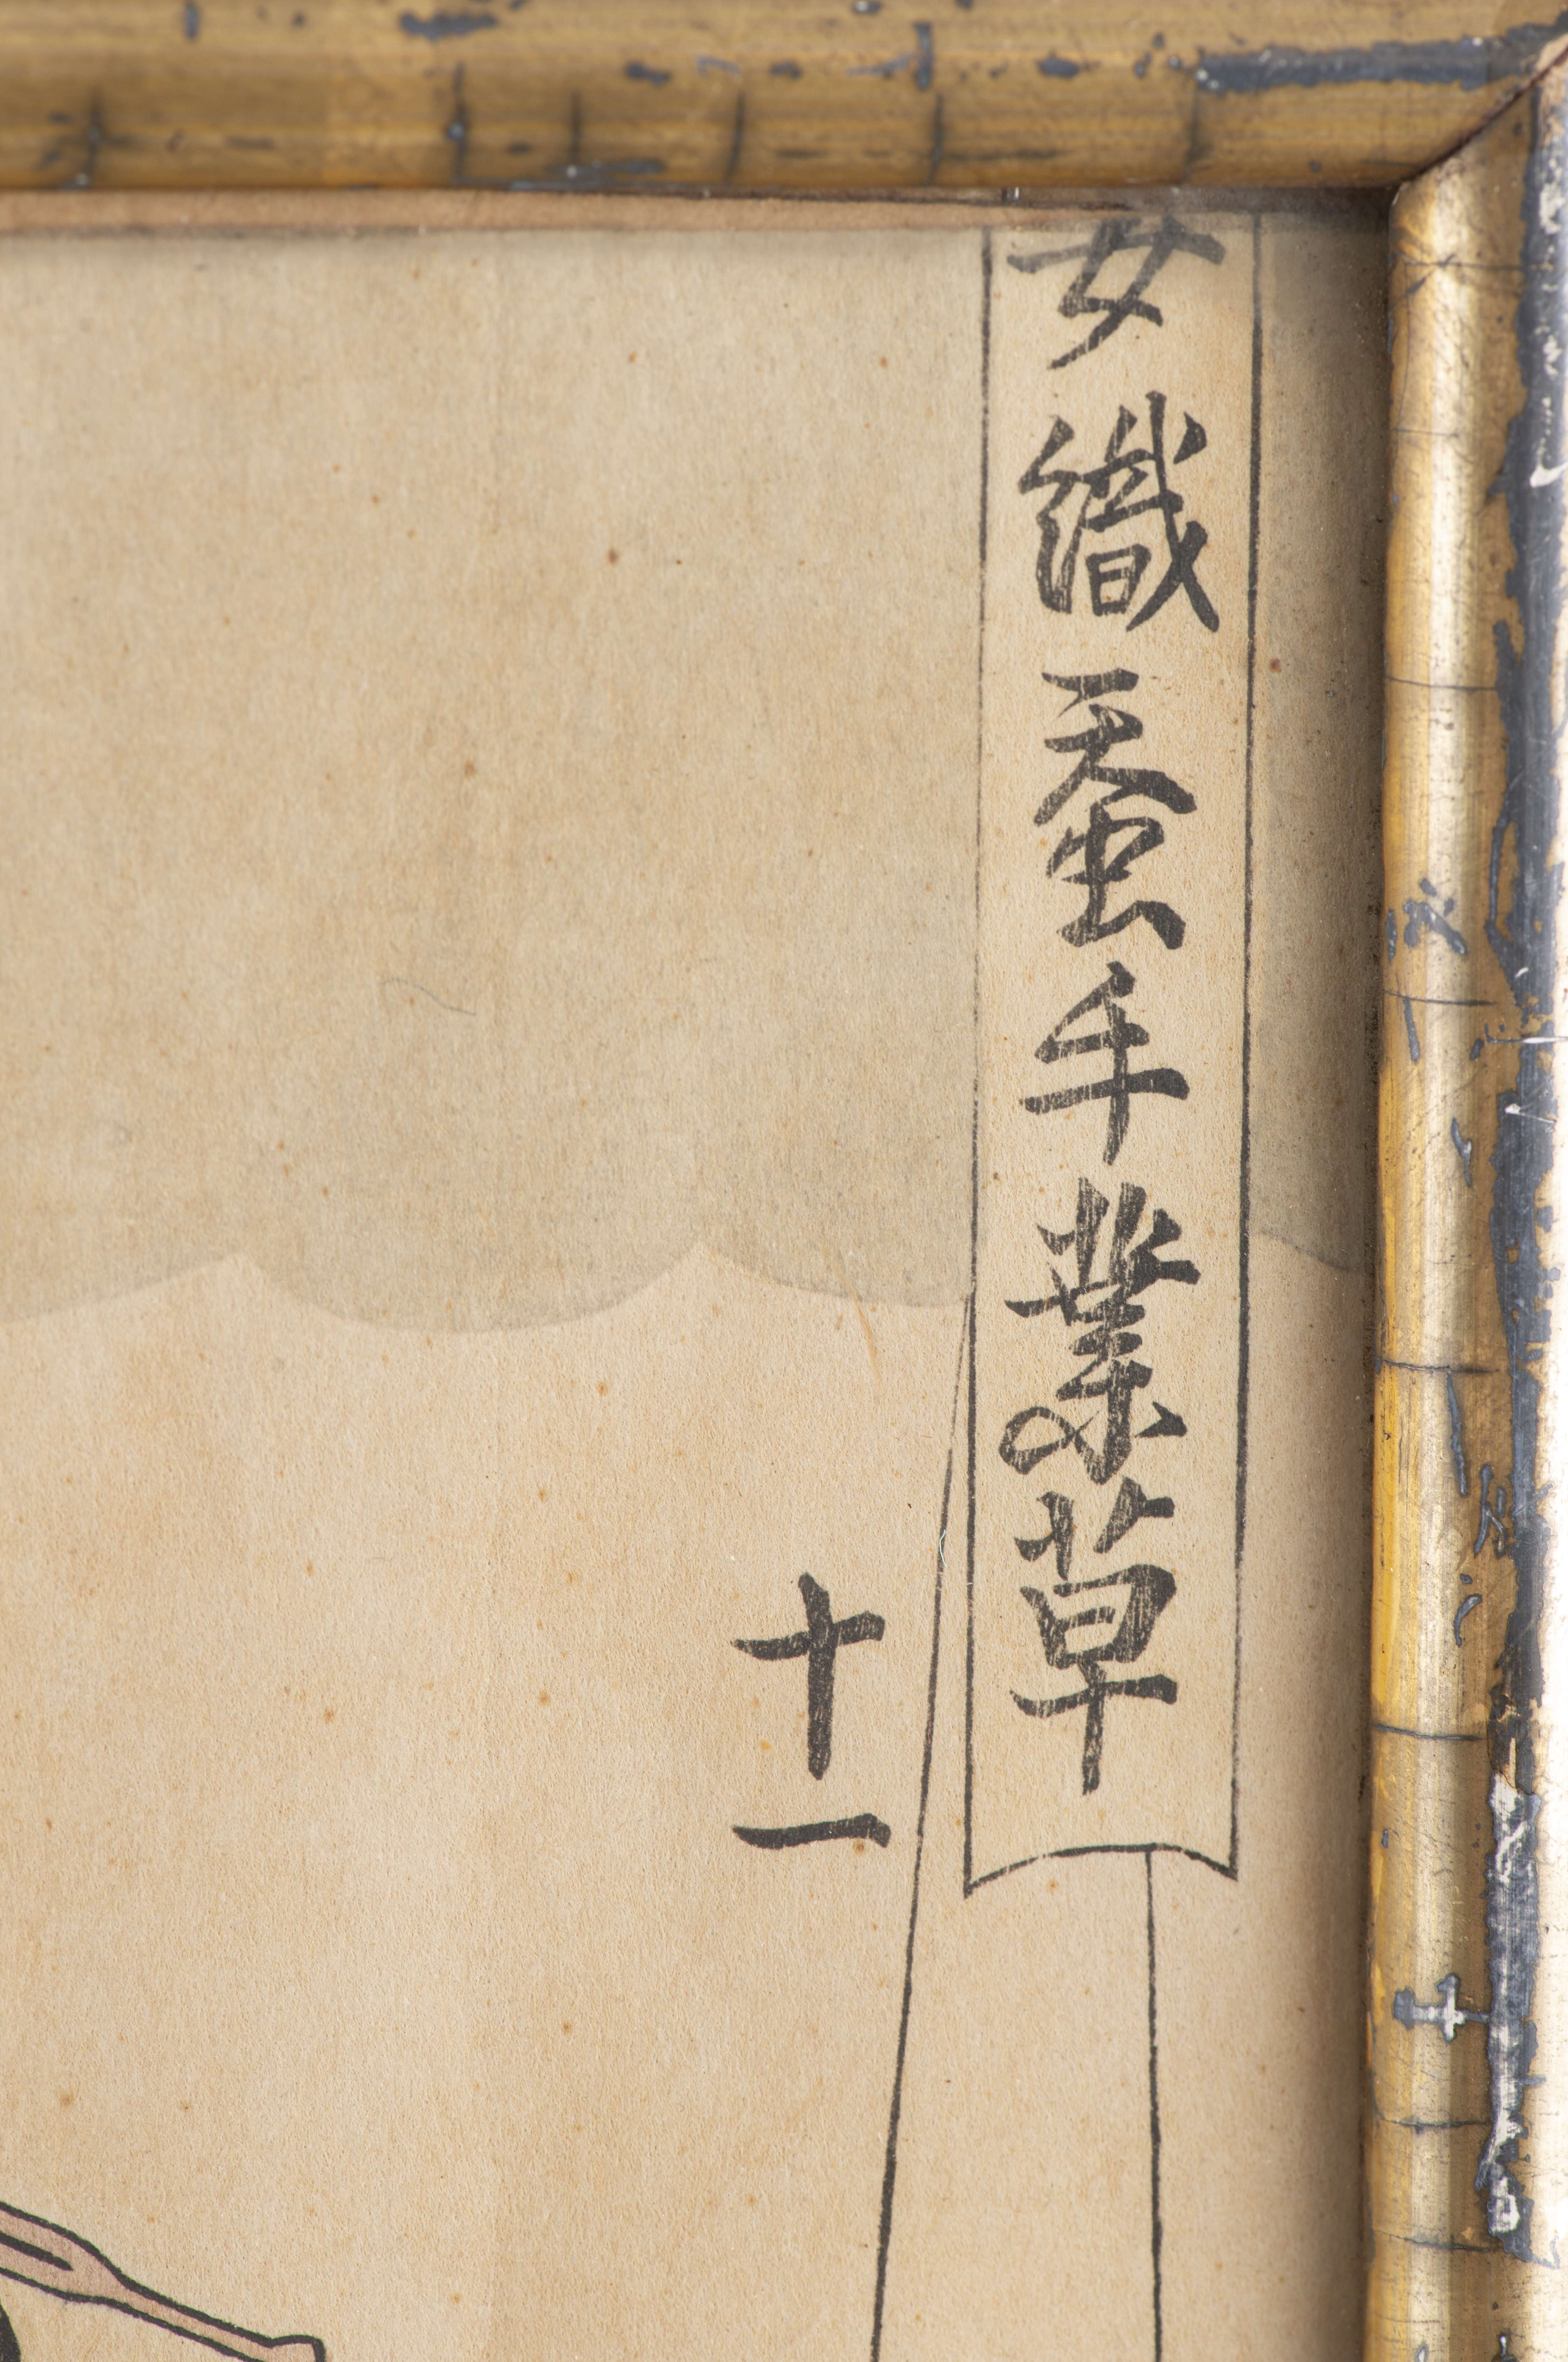 女織蚕手業草
十一